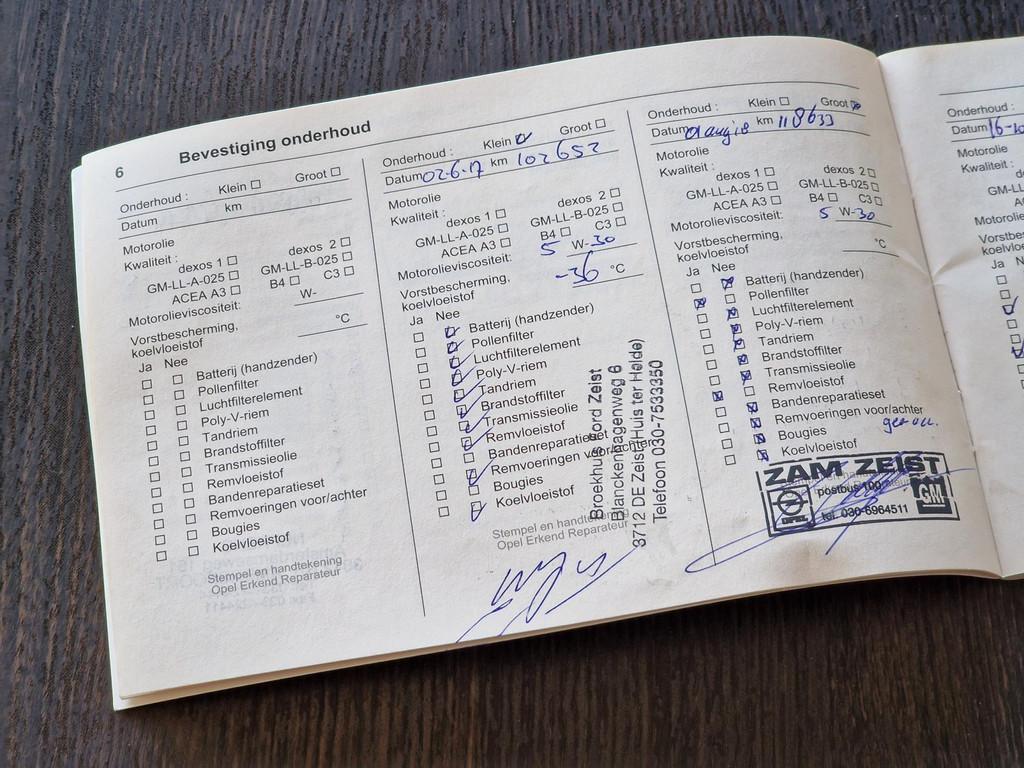 6
Bevestiging onderhoud
Onderhoud : Klein Groot
Datum km
Motorolie
Kwaliteit : dexos 1 dexos 2
GM-LL-A-025 GM-LL-B-025
ACEA A3 B4 C3
Motorolieviscositeit: W-
Vorstbescherming, °C
koelvloeistof
Ja Nee
Batterij (handzender)
Pollenfilter
Luchtfilterelement
Poly-V-riem
Tandriem
Brandstoffilter
Transmissieolie
Remvloeistof
Bandenreparatieset
Remvoeringen voor/achter
Bougies
Koelvloeistof
Stempel en handtekening
Opel Erkend Reparateur
Onderhoud : Klein Groot
Datum 02-6-17 km 102652
Motorolie
Kwaliteit : dexos 1 dexos 2
GM-LL-A-025 GM-LL-B-025
ACEA A3 B4 C3
Motorolieviscositeit: 5 W-30
Vorstbescherming, -36 °C
koelvloeistof
Ja Nee
Batterij (handzender)
Pollenfilter
Luchtfilterelement
Poly-V-riem
Tandriem
Brandstoffilter
Transmissieolie
Remvloeistof
Bandenreparatieset
Remvoeringen voor/achter
Bougies
Koelvloeistof
Stempel en handtekening
Opel Erkend Reparateur
Broekhuis Ford Zeist
Blanckenhagenweg 6
3712 DE Zeist(Huis ter Heide)
Telefoon 030-7533350
Onderhoud : Klein Groot
Datum 01 aug 18 km 118633
Motorolie
Kwaliteit : dexos 1 dexos 2
GM-LL-A-025 GM-LL-B-025
ACEA A3 B4 C3
Motorolieviscositeit: 5 W-30
Vorstbescherming, °C
koelvloeistof
Ja Nee
Batterij (handzender)
Pollenfilter
Luchtfilterelement
Poly-V-riem
Tandriem
Brandstoffilter
Transmissieolie
Remvloeistof
Bandenreparatieset
Remvoeringen voor/achter
Bougies
Koelvloeistof
ZAM ZEIST
postbus 100
tel. 030-6964511
OPEL
GM
Onderhoud :
Datum 16-10
Motorolie
Kwaliteit :
GM-LL
ACE
Motorolie
Vorstbes
koelvloe
Ja Ne